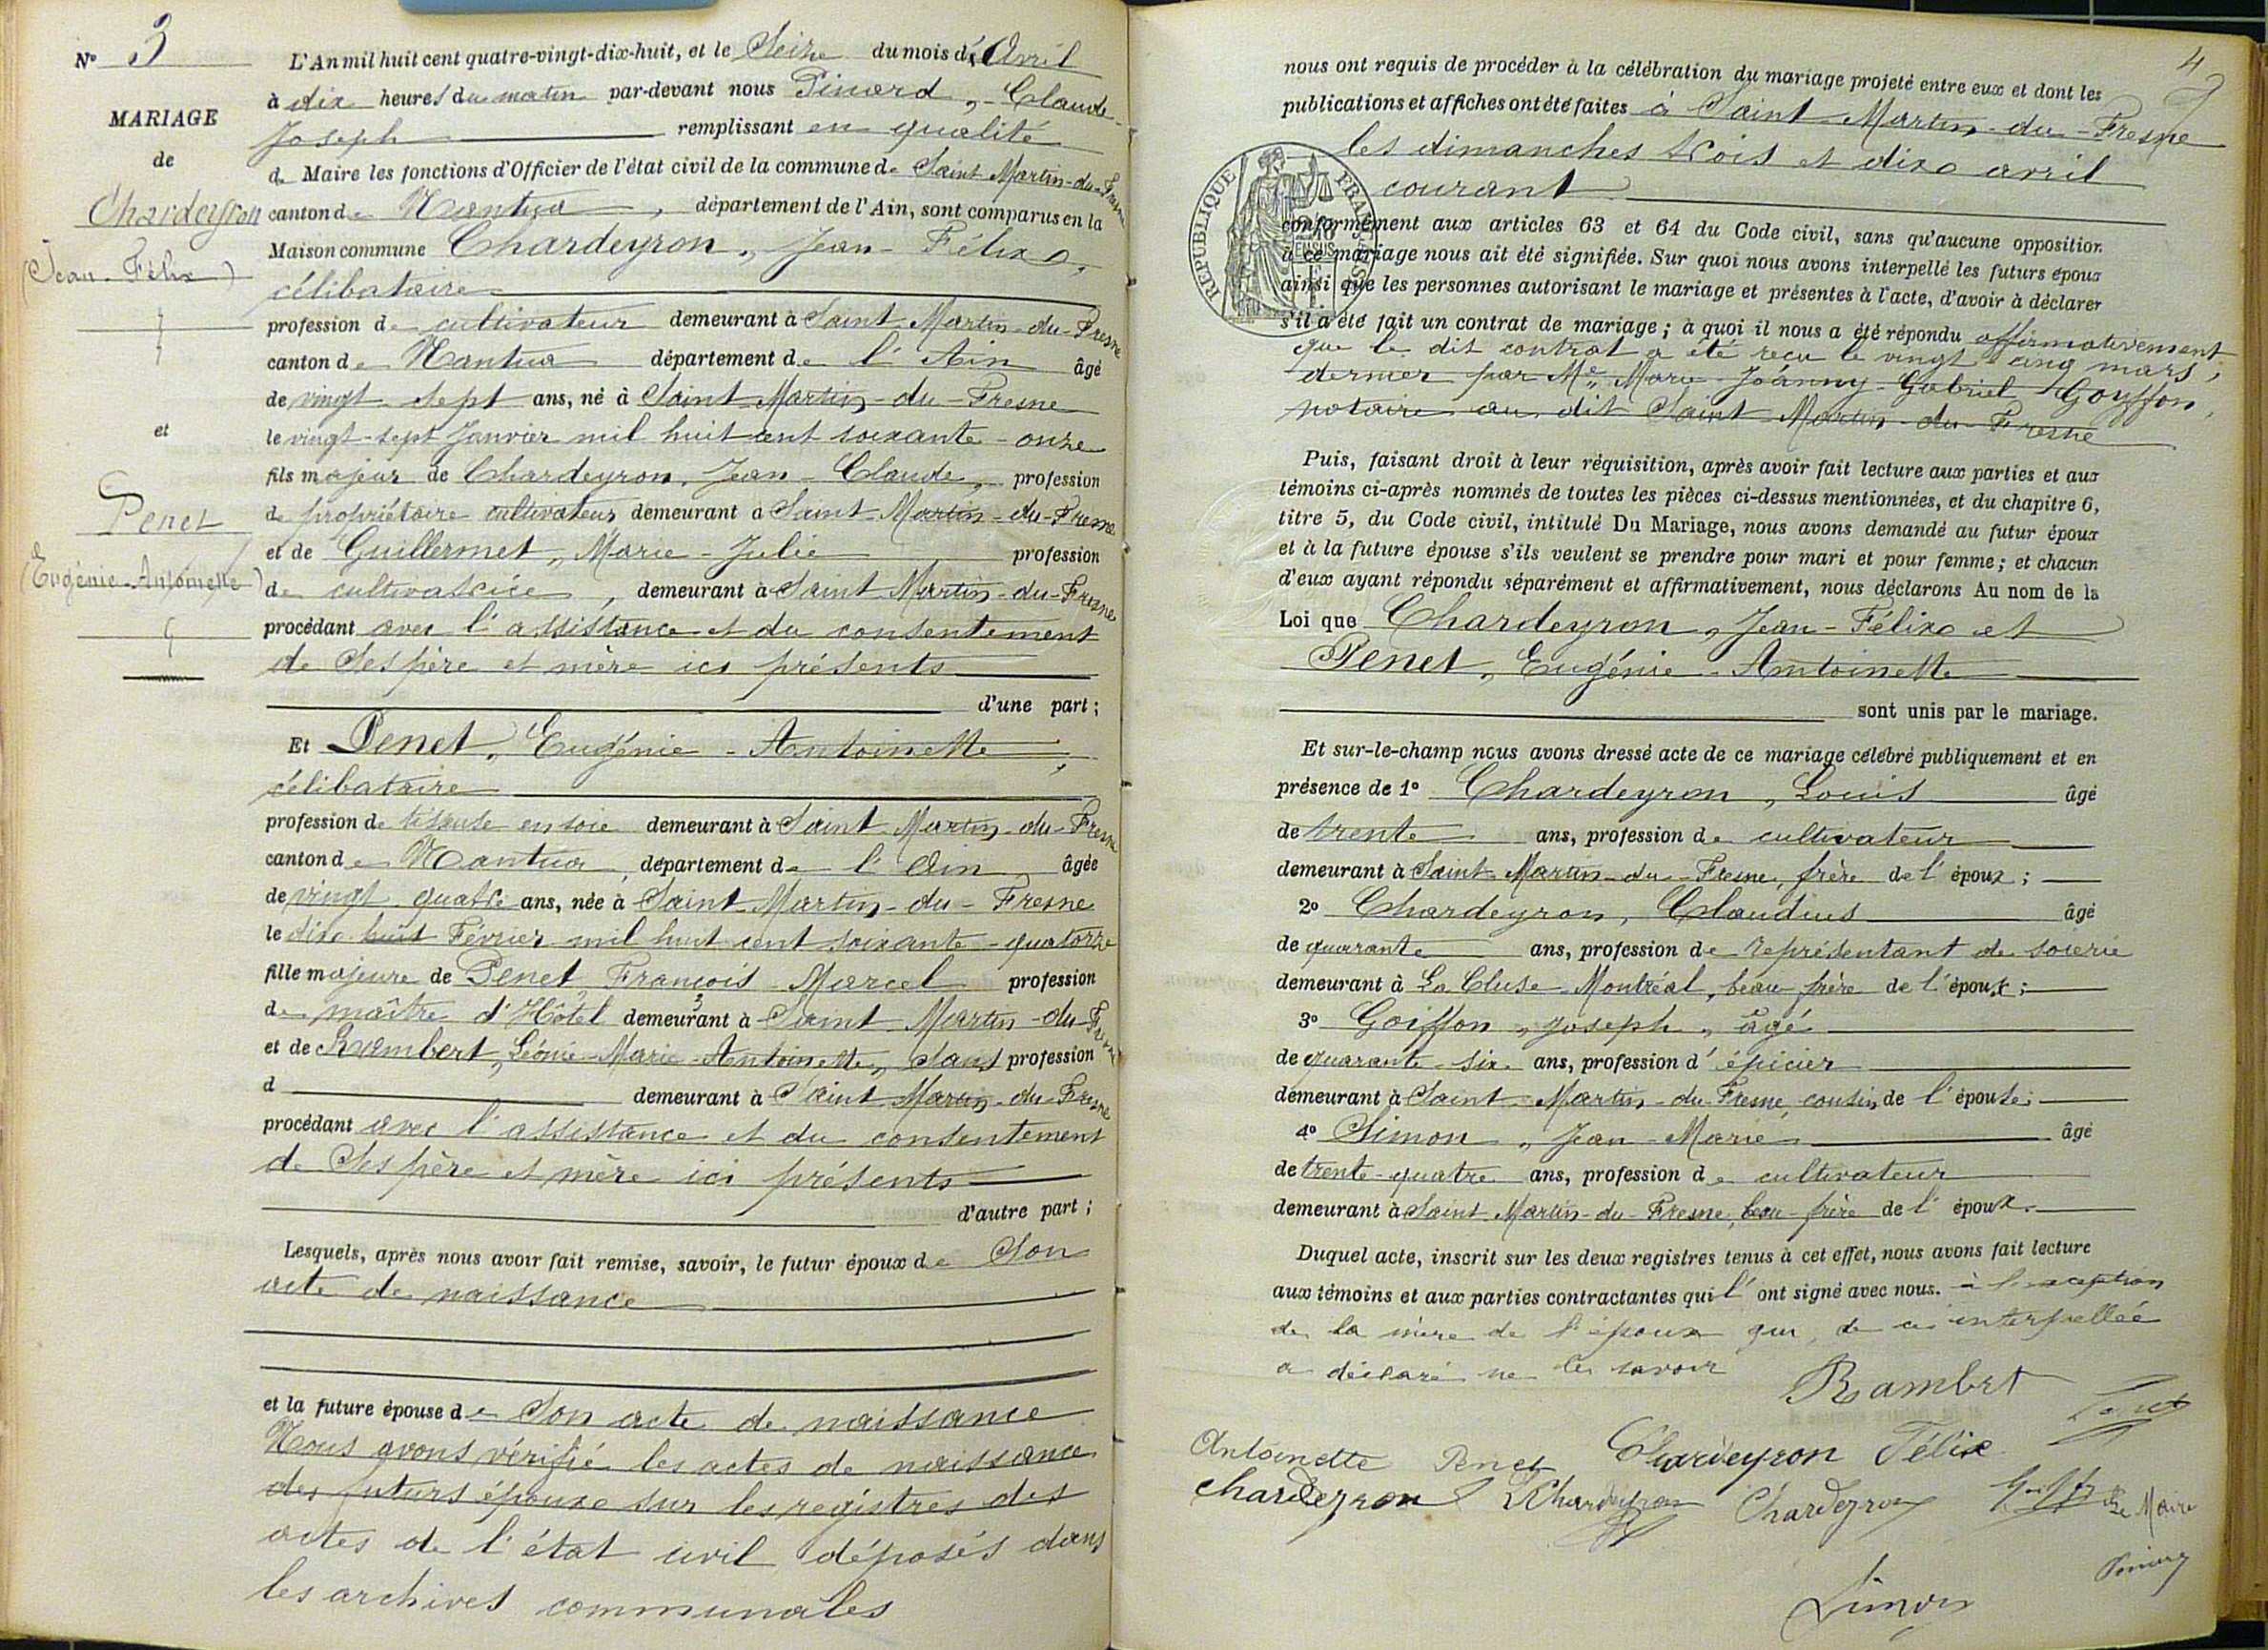 N° 3
MARIAGE
de
Chardeyron
(Jean-Félix)
et
Penet
(Eugénie-Antoinette)
L'An mil huit cent quatre-vingt-dix-huit, et le Seize du mois d'Avril
à dix heures du matin par-devant nous Pinard, Claude-
Joseph remplissant en qualité
de Maire les fonctions d'Officier de l'état civil de la commune de Saint-Martin-du-Fresne
canton de Nantua, département de l'Ain, sont comparus en la
Maison commune Chardeyron, Jean-Félix,
célibataire
profession de cultivateur demeurant à Saint-Martin-du-Fresne
canton de Nantua département de l'Ain âgé
de vingt-sept ans, né à Saint-Martin-du-Fresne
le vingt-sept Janvier mil huit cent soixante-onze
fils majeur de Chardeyron, Jean-Claude, profession
de propriétaire cultivateur demeurant à Saint-Martin-du-Fresne
et de Guillermet, Marie-Julie profession
de cultivatrice, demeurant à Saint-Martin-du-Fresne
procédant avec l'assistance et du consentement
de ses père et mère ici présents
d'une part;
Et Penet, Eugénie-Antoinette,
célibataire
profession de tisseuse en soie demeurant à Saint-Martin-du-Fresne
canton de Nantua, département de l'Ain, âgée
de vingt quatre ans, née à Saint-Martin-du-Fresne
le dix-huit Février mil huit cent soixante-quatorze
fille majeure de Penet, François-Marcel profession
de maître d'Hôtel demeurant à Saint-Martin-du-Fresne
et de Rambert, Léonie-Marie-Antoinette, sans profession
d demeurant à Saint-Martin-du-Fresne
procédant avec l'assistance et du consentement
de ses père et mère ici présents
d'autre part;
Lesquels, après nous avoir fait remise, savoir, le futur époux de Son
acte de naissance
et la future épouse de Son acte de naissance
Nous avons vérifié les actes de naissance
des futurs époux sur les registres des
actes de l'état civil déposés dans
les archives communales
4
nous ont requis de procéder à la célébration du mariage projeté entre eux et dont les
publications et affiches ont été faites à Saint-Martin-du-Fresne
les dimanches trois et dix avril
courant
RÉPUBLIQUE FRANÇAISE
conformément aux articles 63 et 64 du Code civil, sans qu'aucune opposition
à ce mariage nous ait été signifiée. Sur quoi nous avons interpellé les futurs époux
ainsi que les personnes autorisant le mariage et présentes à l'acte, d'avoir à déclarer
s'il a été fait un contrat de mariage; à quoi il nous a été répondu affirmativement
que le dit contrat a été reçu le vingt-cinq mars
dernier par Me Marie-Joanny-Gabriel Goyffon,
notaire au dit Saint-Martin-du-Fresne
Puis, faisant droit à leur réquisition, après avoir fait lecture aux parties et aux
témoins ci-après nommés de toutes les pièces ci-dessus mentionnées, et du chapitre 6,
titre 5, du Code civil, intitulé Du Mariage, nous avons demandé au futur époux
et à la future épouse s'ils veulent se prendre pour mari et pour femme; et chacun
d'eux ayant répondu séparément et affirmativement, nous déclarons Au nom de la
Loi que Chardeyron, Jean-Félix et
Penet, Eugénie-Antoinette
sont unis par le mariage.
Et sur-le-champ nous avons dressé acte de ce mariage célébré publiquement et en
présence de 1° Chardeyron, Louis âgé
de trente ans, profession de cultivateur
demeurant à Saint-Martin-du-Fresne, frère de l'époux;
2° Chardeyron, Claudius âgé
de quarante ans, profession de représentant de soierie
demeurant à La Cluse-Montréal, beau frère de l'époux;
3° Goiffon, Joseph, âgé
de quarante-six ans, profession d'épicier
demeurant à Saint-Martin-du-Fresne, cousin de l'épouse;
4° Simon, Jean-Marie âgé
de trente-quatre ans, profession de cultivateur
demeurant à Saint-Martin-du-Fresne, beau-frère de l'époux.
Duquel acte, inscrit sur les deux registres tenus à cet effet, nous avons fait lecture
aux témoins et aux parties contractantes qui l'ont signé avec nous. à l'exception
de la mère de l'époux qui, de ce interpellée
a déclaré ne le savoir
Rambert Penet
Antoinette Penet Chardeyron Félix
Chardeyron LChardeyron Chardeyron Le Maire
Pinard
Simon